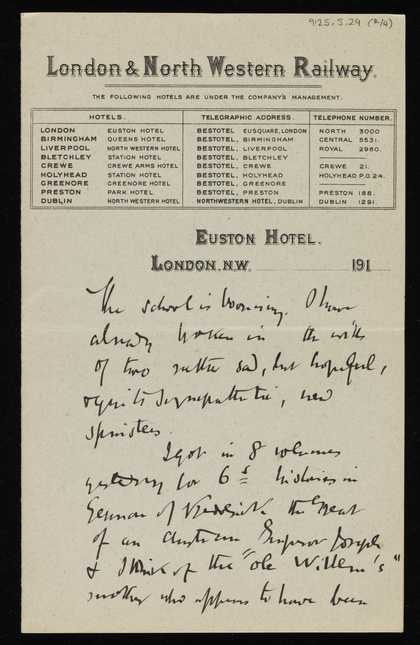 925.5.29 (2/4)
London & North Western Railway.
THE FOLLOWING HOTELS ARE UNDER THE COMPANY'S MANAGEMENT.
HOTELS. TELEGRAPHIC ADDRESS. TELEPHONE NUMBER.
LONDON EUSTON HOTEL BESTOTEL, EUSQUARE, LONDON NORTH 3000
BIRMINGHAM QUEENS HOTEL BESTOTEL, BIRMINGHAM CENTRAL 5531.
LIVERPOOL NORTH WESTERN HOTEL BESTOTEL, LIVERPOOL ROYAL 2960.
BLETCHLEY STATION HOTEL BESTOTEL, BLETCHLEY
CREWE CREWE ARMS HOTEL BESTOTEL, CREWE CREWE 21.
HOLYHEAD STATION HOTEL BESTOTEL, HOLYHEAD HOLYHEAD P.O.24.
GREENORE GREENORE HOTEL BESTOTEL, GREENORE
PRESTON PARK HOTEL BESTOTEL, PRESTON PRESTON 188.
DUBLIN NORTH WESTERN HOTEL NORTHWESTERN HOTEL, DUBLIN DUBLIN 1291.
EUSTON HOTEL.
LONDON. N.W. 191
The school is booming. I have
already broken in the wills
of two rather sad, but hopeful,
quite sympathetic, new
spinsters.
I got in 8 volumes
yesterday for 6s histories in
German of Frederick the Great
of an Austrian Emperor Joseph
& I think of the "ole Willem's"
mother who appears to have been